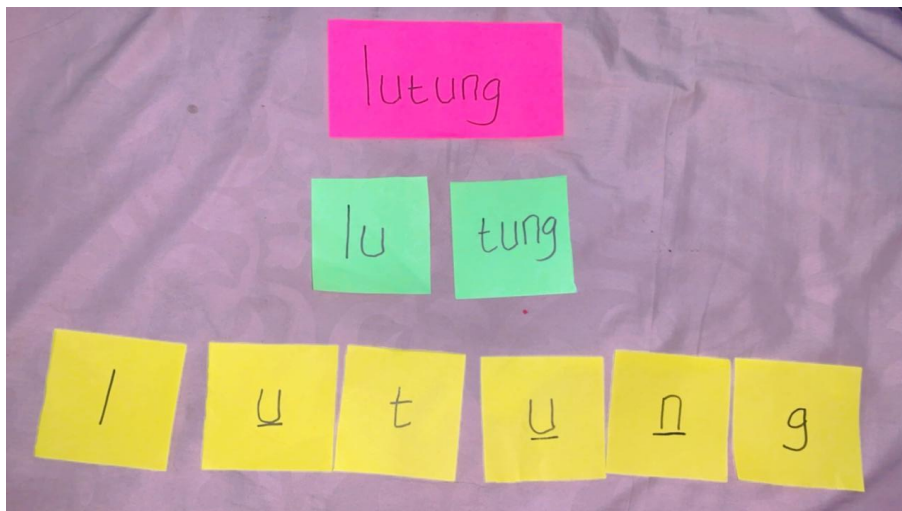 lutung
lu tung
l u t u n g